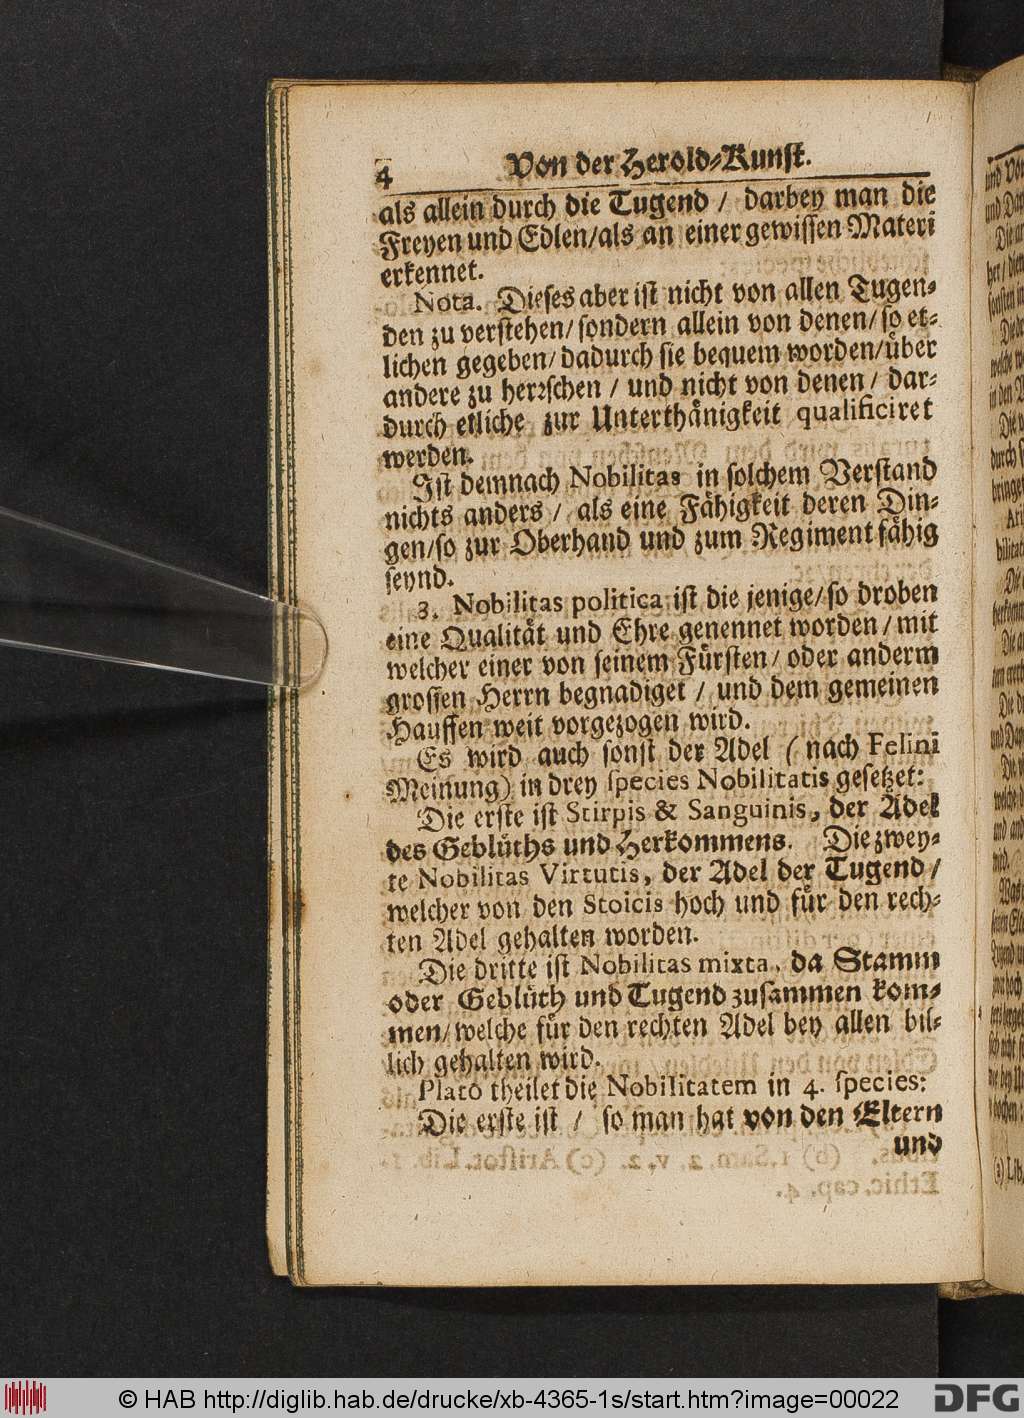 4 Von der Herold-Kunst.
als allein durch die Tugend / darbey man die
Freyen und Edlen/als an einer gewissen Materi
erkennet.
Nota. Dieses aber ist nicht von allen Tugen-
den zu verstehen/ sondern allein von denen/ so et-
lichen gegeben/ dadurch sie bequem worden/ über
andere zu herrschen / und nicht von denen / dar-
durch etliche zur Unterthänigkeit qualificiret
werden.
Ist demnach Nobilitas in solchem Verstand
nichts anders / als eine Fähigkeit deren Din-
gen/so zur Oberhand und zum Regiment fähig
seynd.
3. Nobilitas politica ist die jenige/ so droben
eine Qualität und Ehre genennet worden / mit
welcher einer von seinem Fürsten/ oder anderm
grossen Herrn begnadiget / und dem gemeinen
Hauffen weit vorgezogen wird.
Es wird auch sonst der Adel ( nach Felini
Meinung) in drey species Nobilitatis gesetzet:
Die erste ist Stirpis & Sanguinis, der Adel
des Geblüths und Herkommens. Die zwey-
te Nobilitas Virtutis, der Adel der Tugend /
welcher von den Stoicis hoch und für den rech-
ten Adel gehalten worden.
Die dritte ist Nobilitas mixta, da Stamm
oder Geblüth und Tugend zusammen kom-
men/ welche für den rechten Adel bey allen bil-
lich gehalten wird.
Plato theilet die Nobilitatem in 4. species:
Die erste ist / so man hat von den Eltern
und
© HAB http://diglib.hab.de/drucke/xb-4365-1s/start.htm?image=00022
DFG